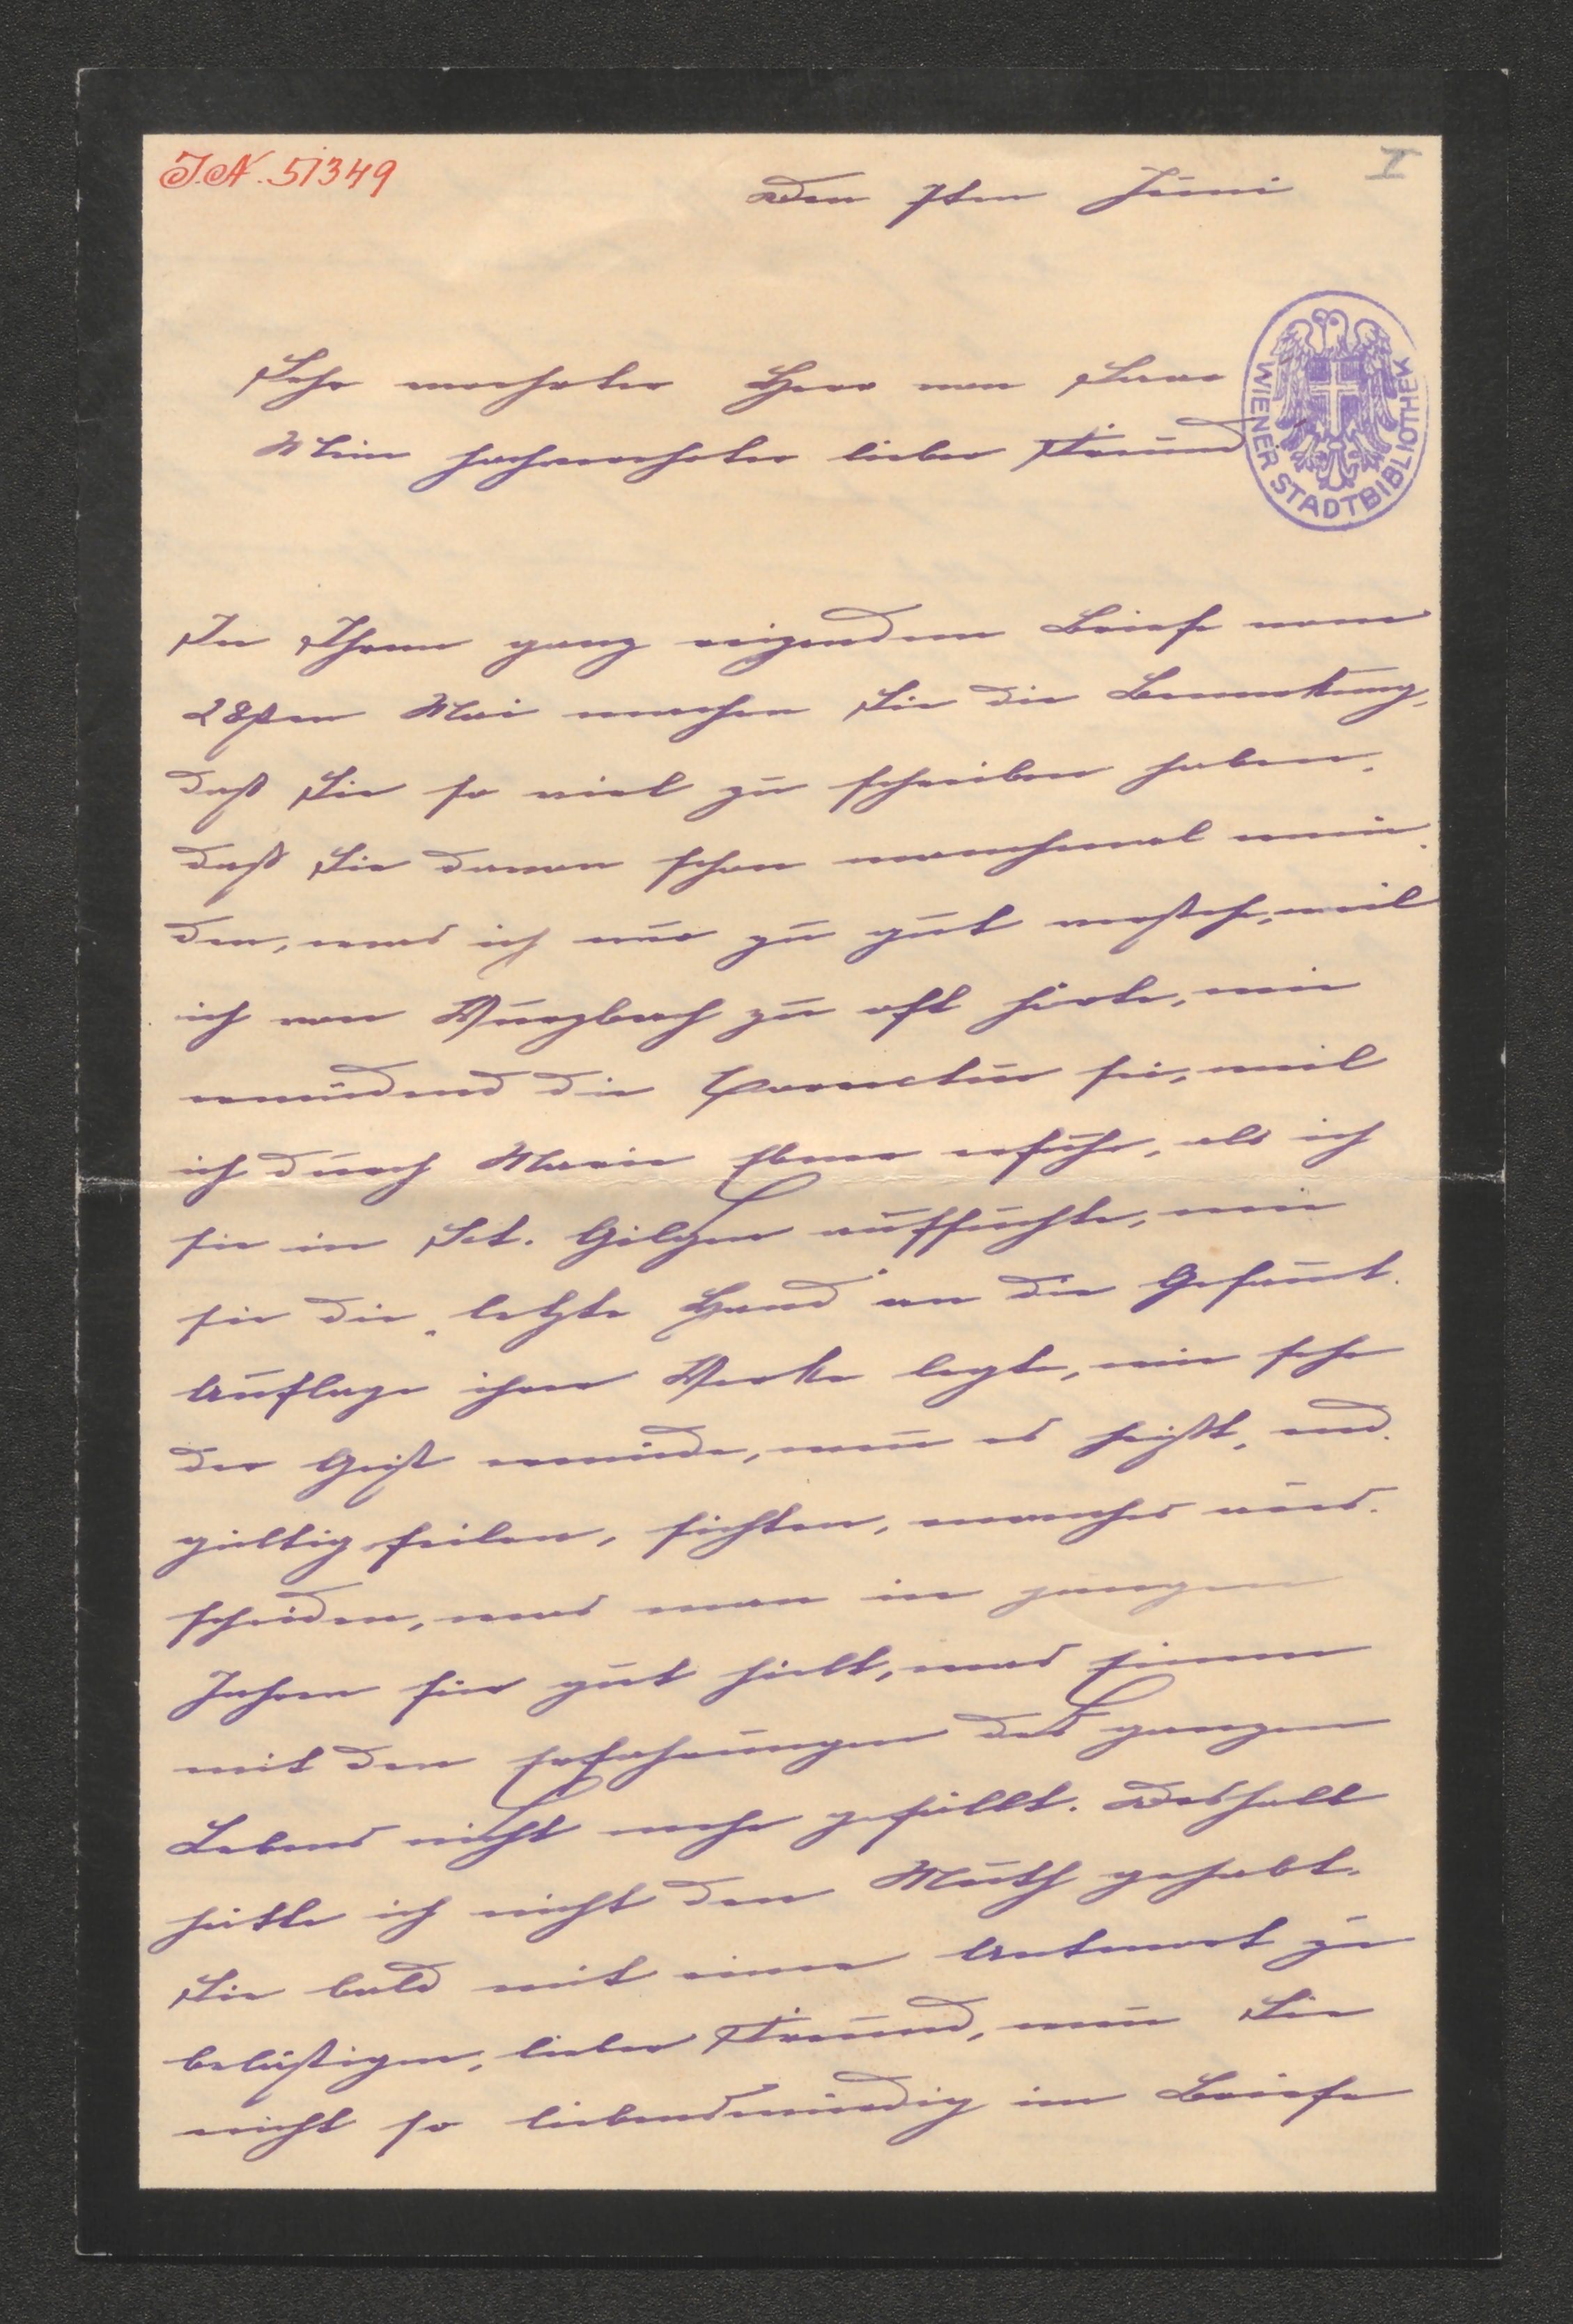 I.N. 51349
I
Den 7ten Juni
Sehr verehrter Herr von Saar
Mein hochverehrter lieber Freund
WIENER STADTBIBLIOTHEK
In Ihrem ganz reizendem Briefe vom
28sten Mai machen Sie die Bemerkung,
daß Sie so viel zu schreiben haben,
daß Sie davon schon manchmal ermü-
den, was ich nur zu gut verstehe, weil
ich von Wurzbach zu oft hörte, wie
ermüdend die Correctur sei, weil
ich durch Marie Ebner erfuhr, als ich
sie in Sct. Gilgen aufsuchte, wie
sie die „letzte Hand" an die Gesamt-
Auflage ihrer Werke legte, wie sehr
der Geist ermüde, wenn es heißt, end-
gültig feilen, sichten, manches aus-
scheiden, was man in jungen
Jahren für gut hielt, was Einem
mit den Erfahrungen des ganzen
Lebens nicht mehr gefällt. Deshalb
hätte ich nicht den Muth gehabt,
Sie bald mit einer Antwort zu
belästigen, lieber Freund, wenn Sie
nicht so liebenswürdig im Briefe